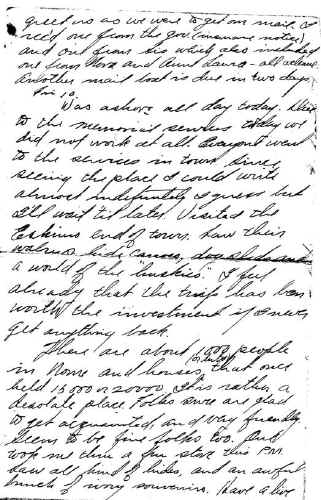 greet us as we went to get our mail. I
rec'd one from the gov (insurance notice)
and one from Sis which also included
one from Nora and Aunt Laura - all welcome
Another mail boat is due in two days
Fri 10.
Was ashore all day today.
to the memorial services today we
did not work at all. Everyone went
to the services in town. Since
seeing the place I could write
almost indefinitely I guess but
I'll wait til later. Visited the
Eskimo end of town. Saw their
walrus hide canoes, dog sleds and
a world of the "huskies". I feel
already that the trip has been
worth the investment if I never
get anything back.
There are about 1000 people
in Nome and houses, that once
held 15000 or 20000. It is rather a
desolate place. Folks here are glad
to get acquainted, and very friendly
Seem to be fine folks too.
me thru a fur store this P.M.
Saw all kind of hides, and an awful
bunch of ivory souvenirs. Have a